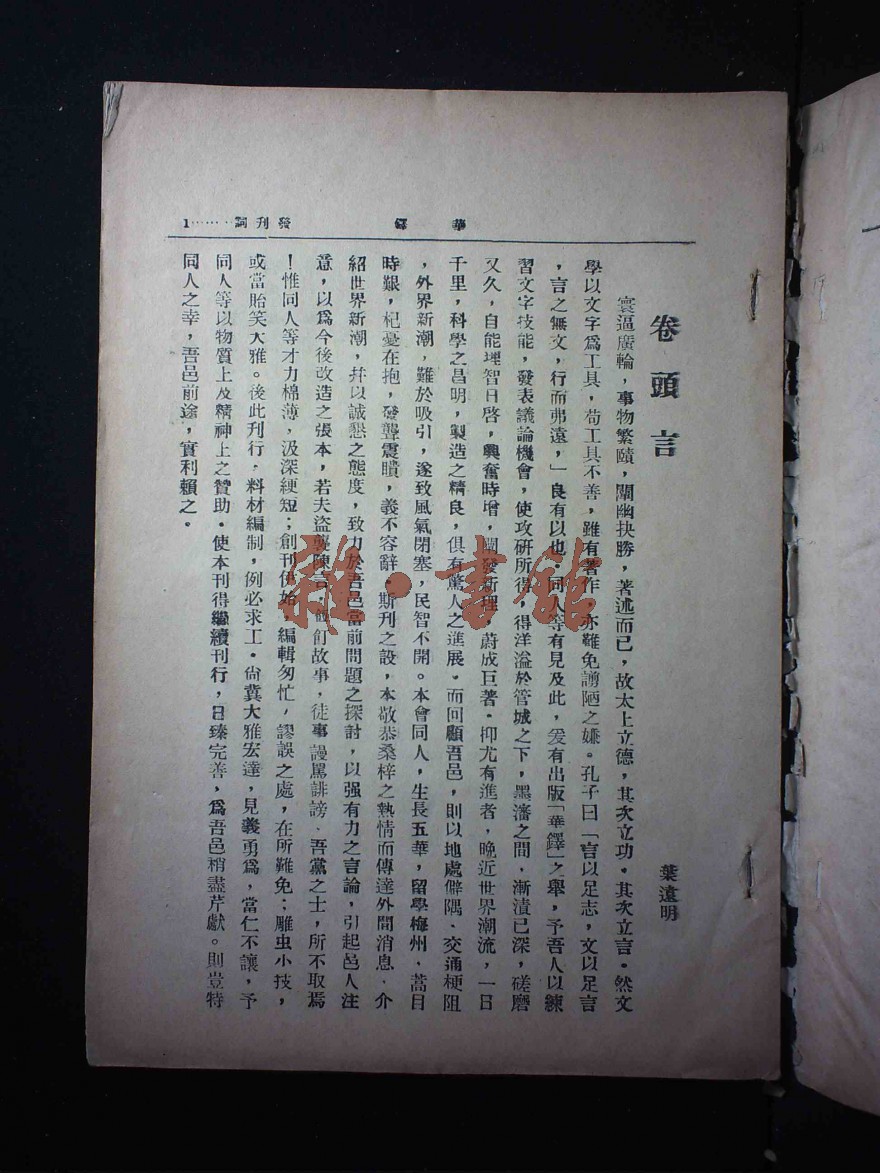 華鐸
發刊詞……1
卷頭言
葉遠明
寰逼廣輪，事物繁賾，闡幽抉勝，著述而已，故太上立德，其次立功。其次立言。然文
學以文字爲工具，苟工具不善，雖有著作，亦難免謭陋之嫌。孔子曰「言以足志，文以足言
，言之無文，行而弗遠，」良有以也，同人等有見及此，爰有出版「華鐸」之舉，予吾人以練
習文字技能，發表議論機會，使攻研所得，得洋溢於管城之下，墨瀋之間，漸漬已深，磋磨
又久，自能埋智日啓，興奮時增，闡發新理，蔚成巨著。抑尤有進者，晚近世界潮流，一日
千里，科學之昌明，製造之精良，俱有驚人之進展。而回顧吾邑，則以地處僻隅、交通梗阻
，外界新潮，難於吸引，遂致風氣閉塞，民智不開。本會同人，生長五華，留學梅州、蒿目
時艱，杞憂在抱，發聾震瞶，義不容辭。斯刊之設，本敬恭桑梓之熱情而傳達外間消息、介
紹世界新潮，幷以誠懇之態度，致力於吾邑當前問題之探討，以强有力之言論，引起邑人注
意，以爲今後改造之張本，若夫盜襲陳言，飣故事，徒事謾罵誹謗、吾黨之士，所不取焉
！惟同人等才力棉薄，汲深綆短；創刊伊始，編輯匆忙，謬誤之處，在所難免；雕虫小技，
或當貽笑大雅。後此刊行，料材編制，例必求工。尙冀大雅宏達，見義勇爲，當仁不讓，予
同人等以物質上及精神上之贊助。使本刊得繼續刊行，日臻完善，爲吾邑稍盡芹獻。則豈特
同人之幸，吾邑前途，實利賴之。
雜·書館